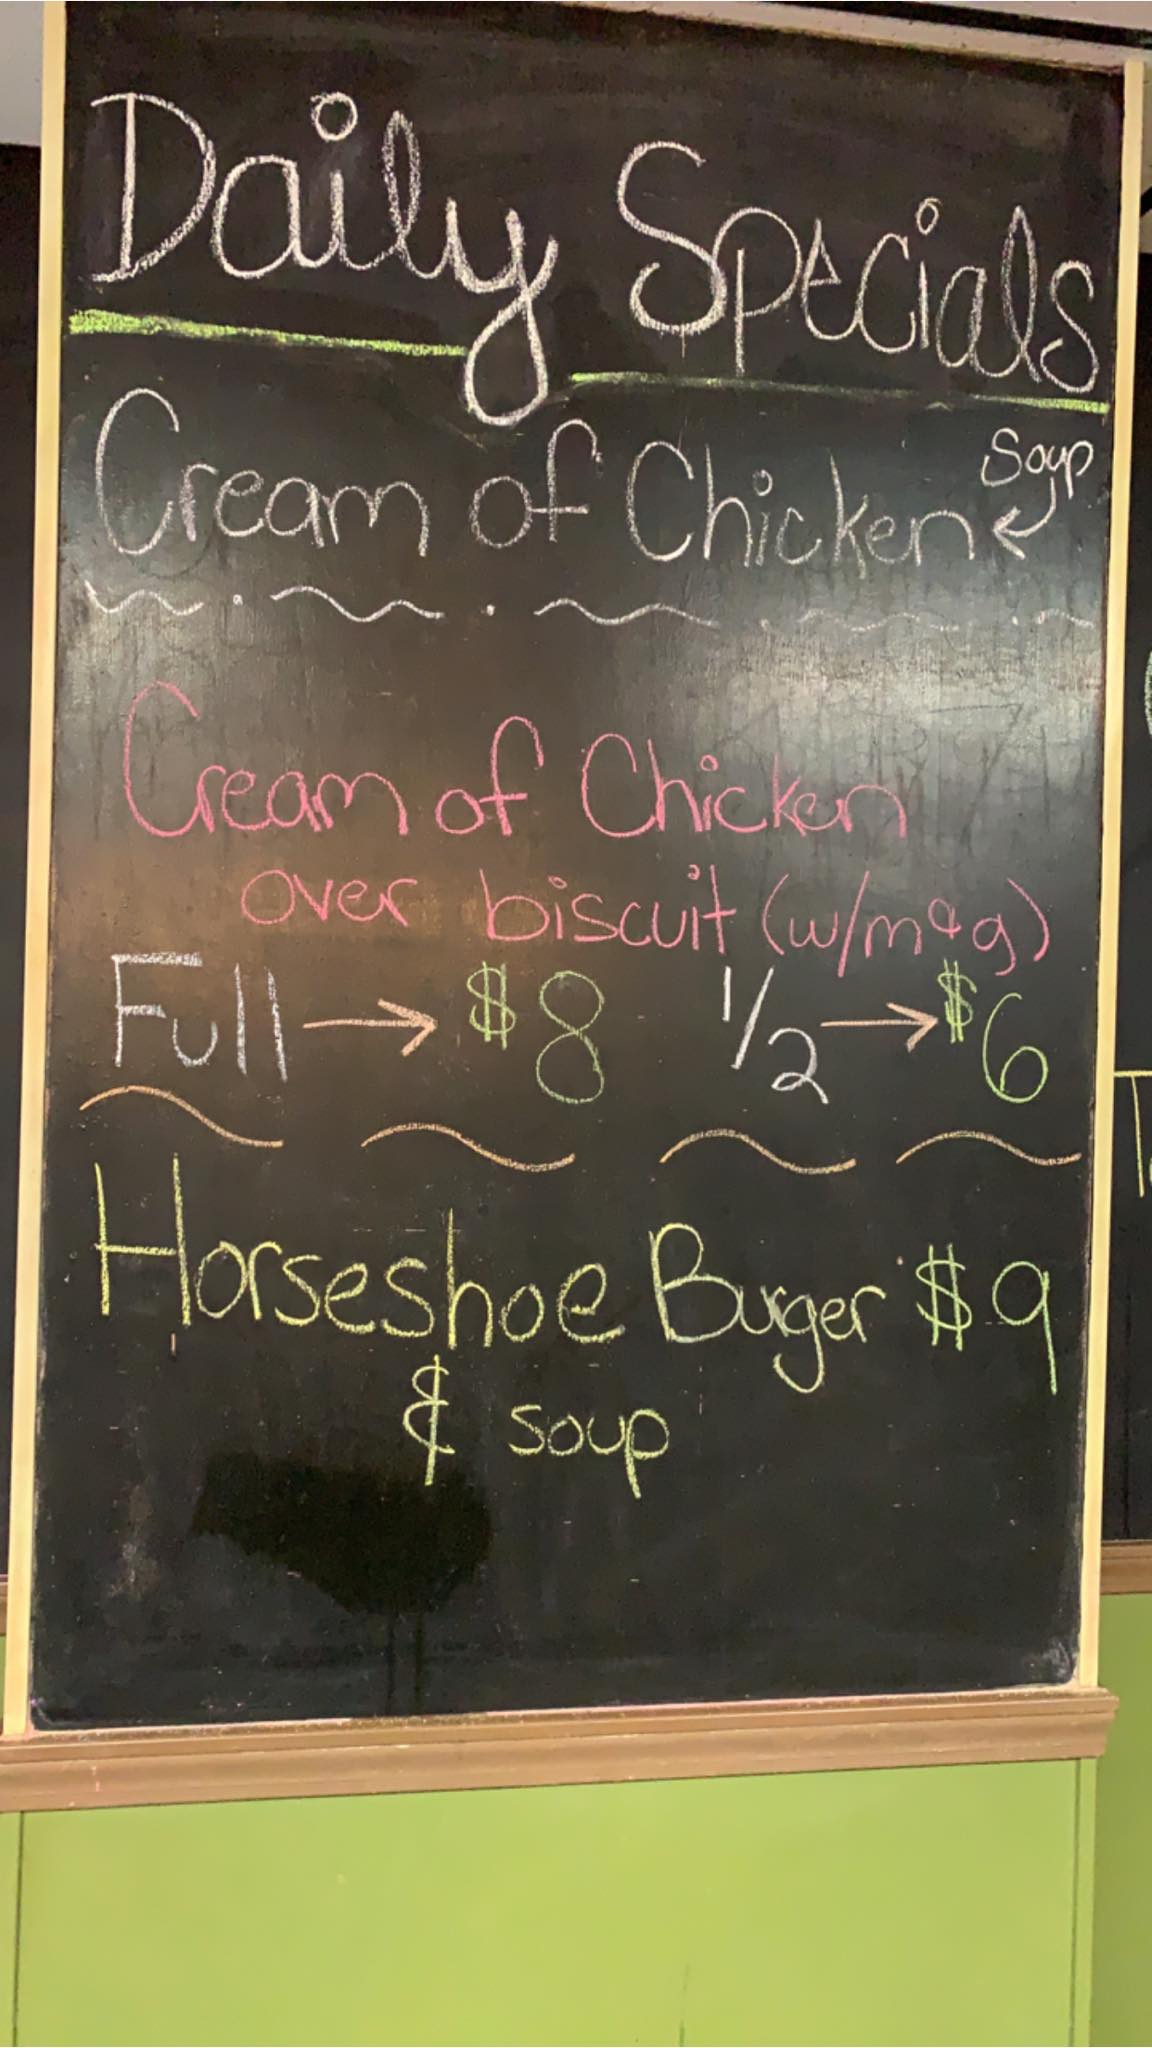 Daily Specials
Soup
Cream of Chicken
Cream of Chicken
over biscuit (w/m&g)
Full → $8 1/2 → $6
Horseshoe Burger $9
& soup